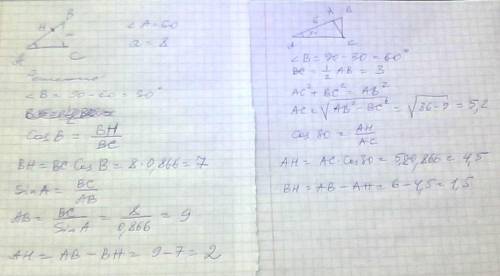 B
H
A
C
∠A=60
a=8
Решение
∠B = 90-60=30°
Cos B = BH/BC
BH= BC·Cos B = 8·0,866=7
Sin A = BC/AB
AB= BC/Sin A = 8/0,866 = 9
AH= AB-BH= 9-7=2
B
6
H
A
C
∠B=90-30=60°
BC= 1/2 AB = 3
AC²+BC²=AB²
AC=√AB²-BC² = √36-9 = 5,2
Cos 30 = AH/AC
AH= AC·Cos30= 5,2·0,866 = 4,5
BH=AB-AH=6-4,5=1,5